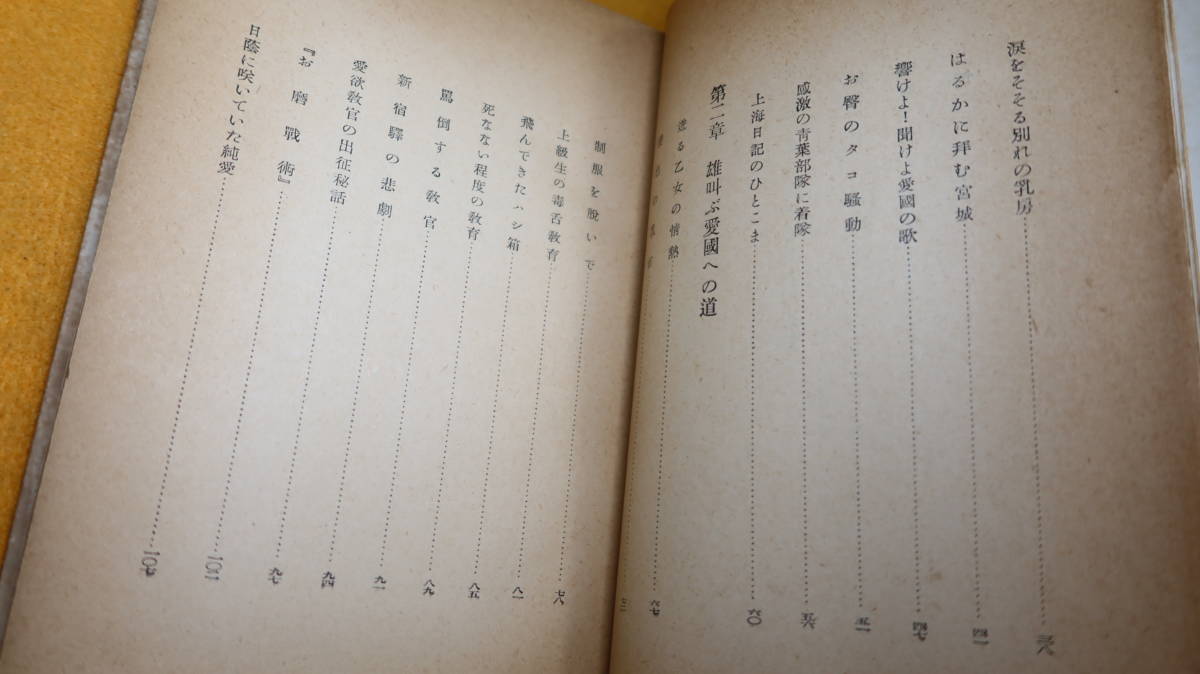 涙をそそる別れの乳房……三八
はるかに拝む宮城……四一
響けよ！聞けよ愛國の歌……四七
お臀のタコ騷動……五一
感激の青葉部隊に着隊……五六
上海日記のひとこま……六〇
第二章　雄叫ぶ愛國への道
迸る乙女の情熱……六七
制服を脱いで……七八
上級生の毒舌教育……八一
飛んできたハシ箱……八五
死なない程度の教育……八九
罵倒する教官……九一
新宿驛の悲劇……九四
愛欲教官の出征秘話……九七
『お磨戰術』……一〇二
日蔭に咲いていた純愛……一〇七